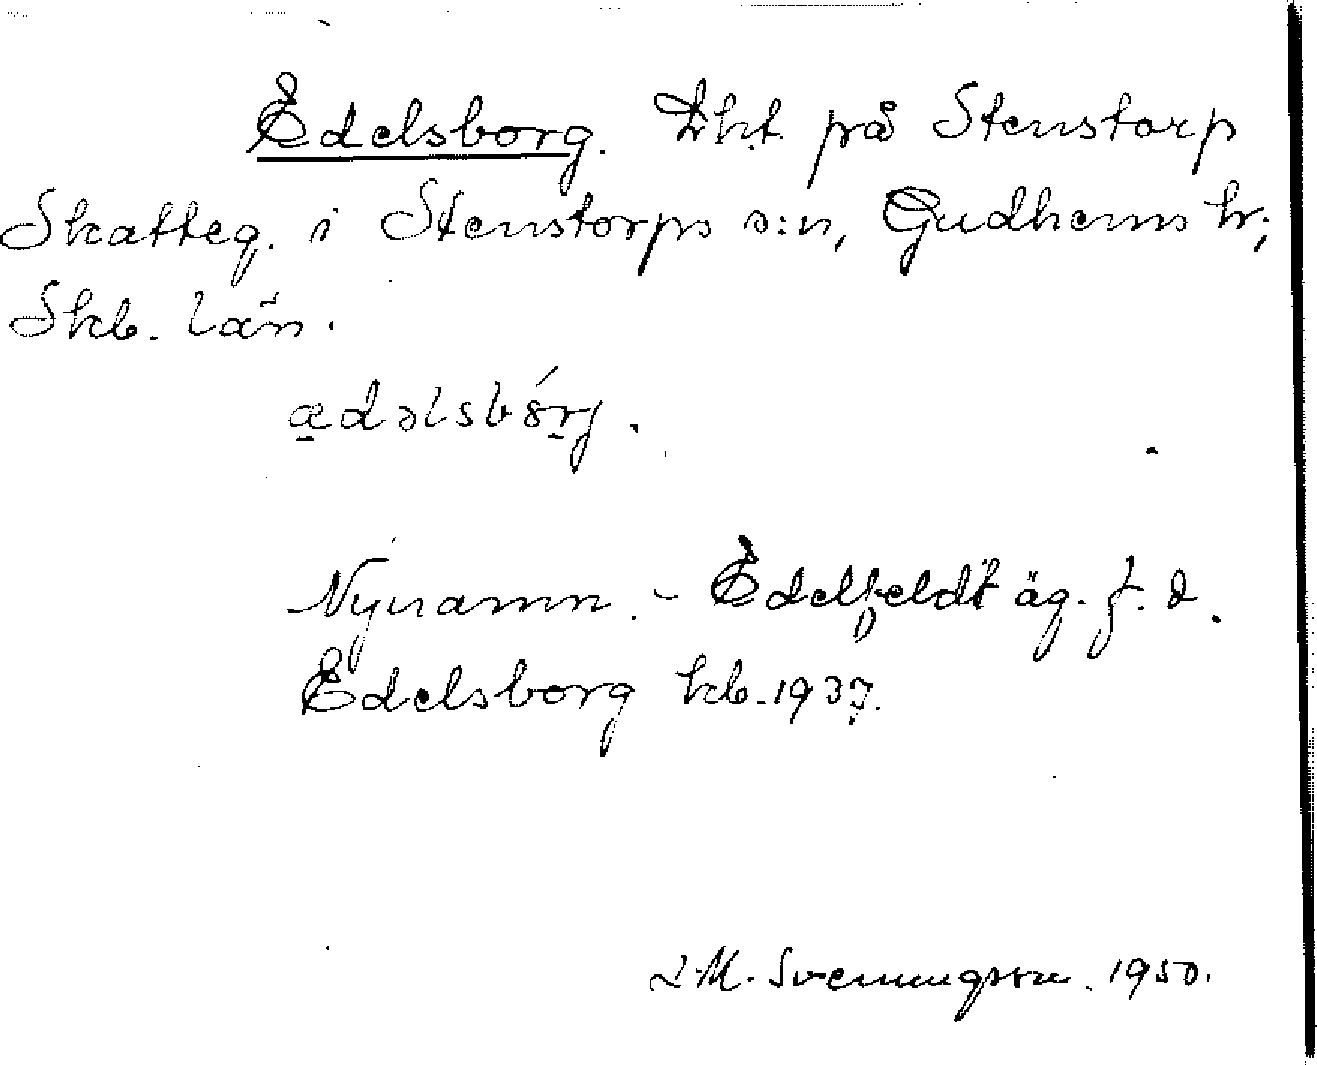 Edelsborg. Lht. på Stenstorp
Skatteg. i Stenstorps s:n, Gudhems hr;
Skb. län.
ædəlsbórj.
Nynamn. - Edelfeldt äg. f. d.
Edelsborg kb. 1937.
Svenningsson. 1950.